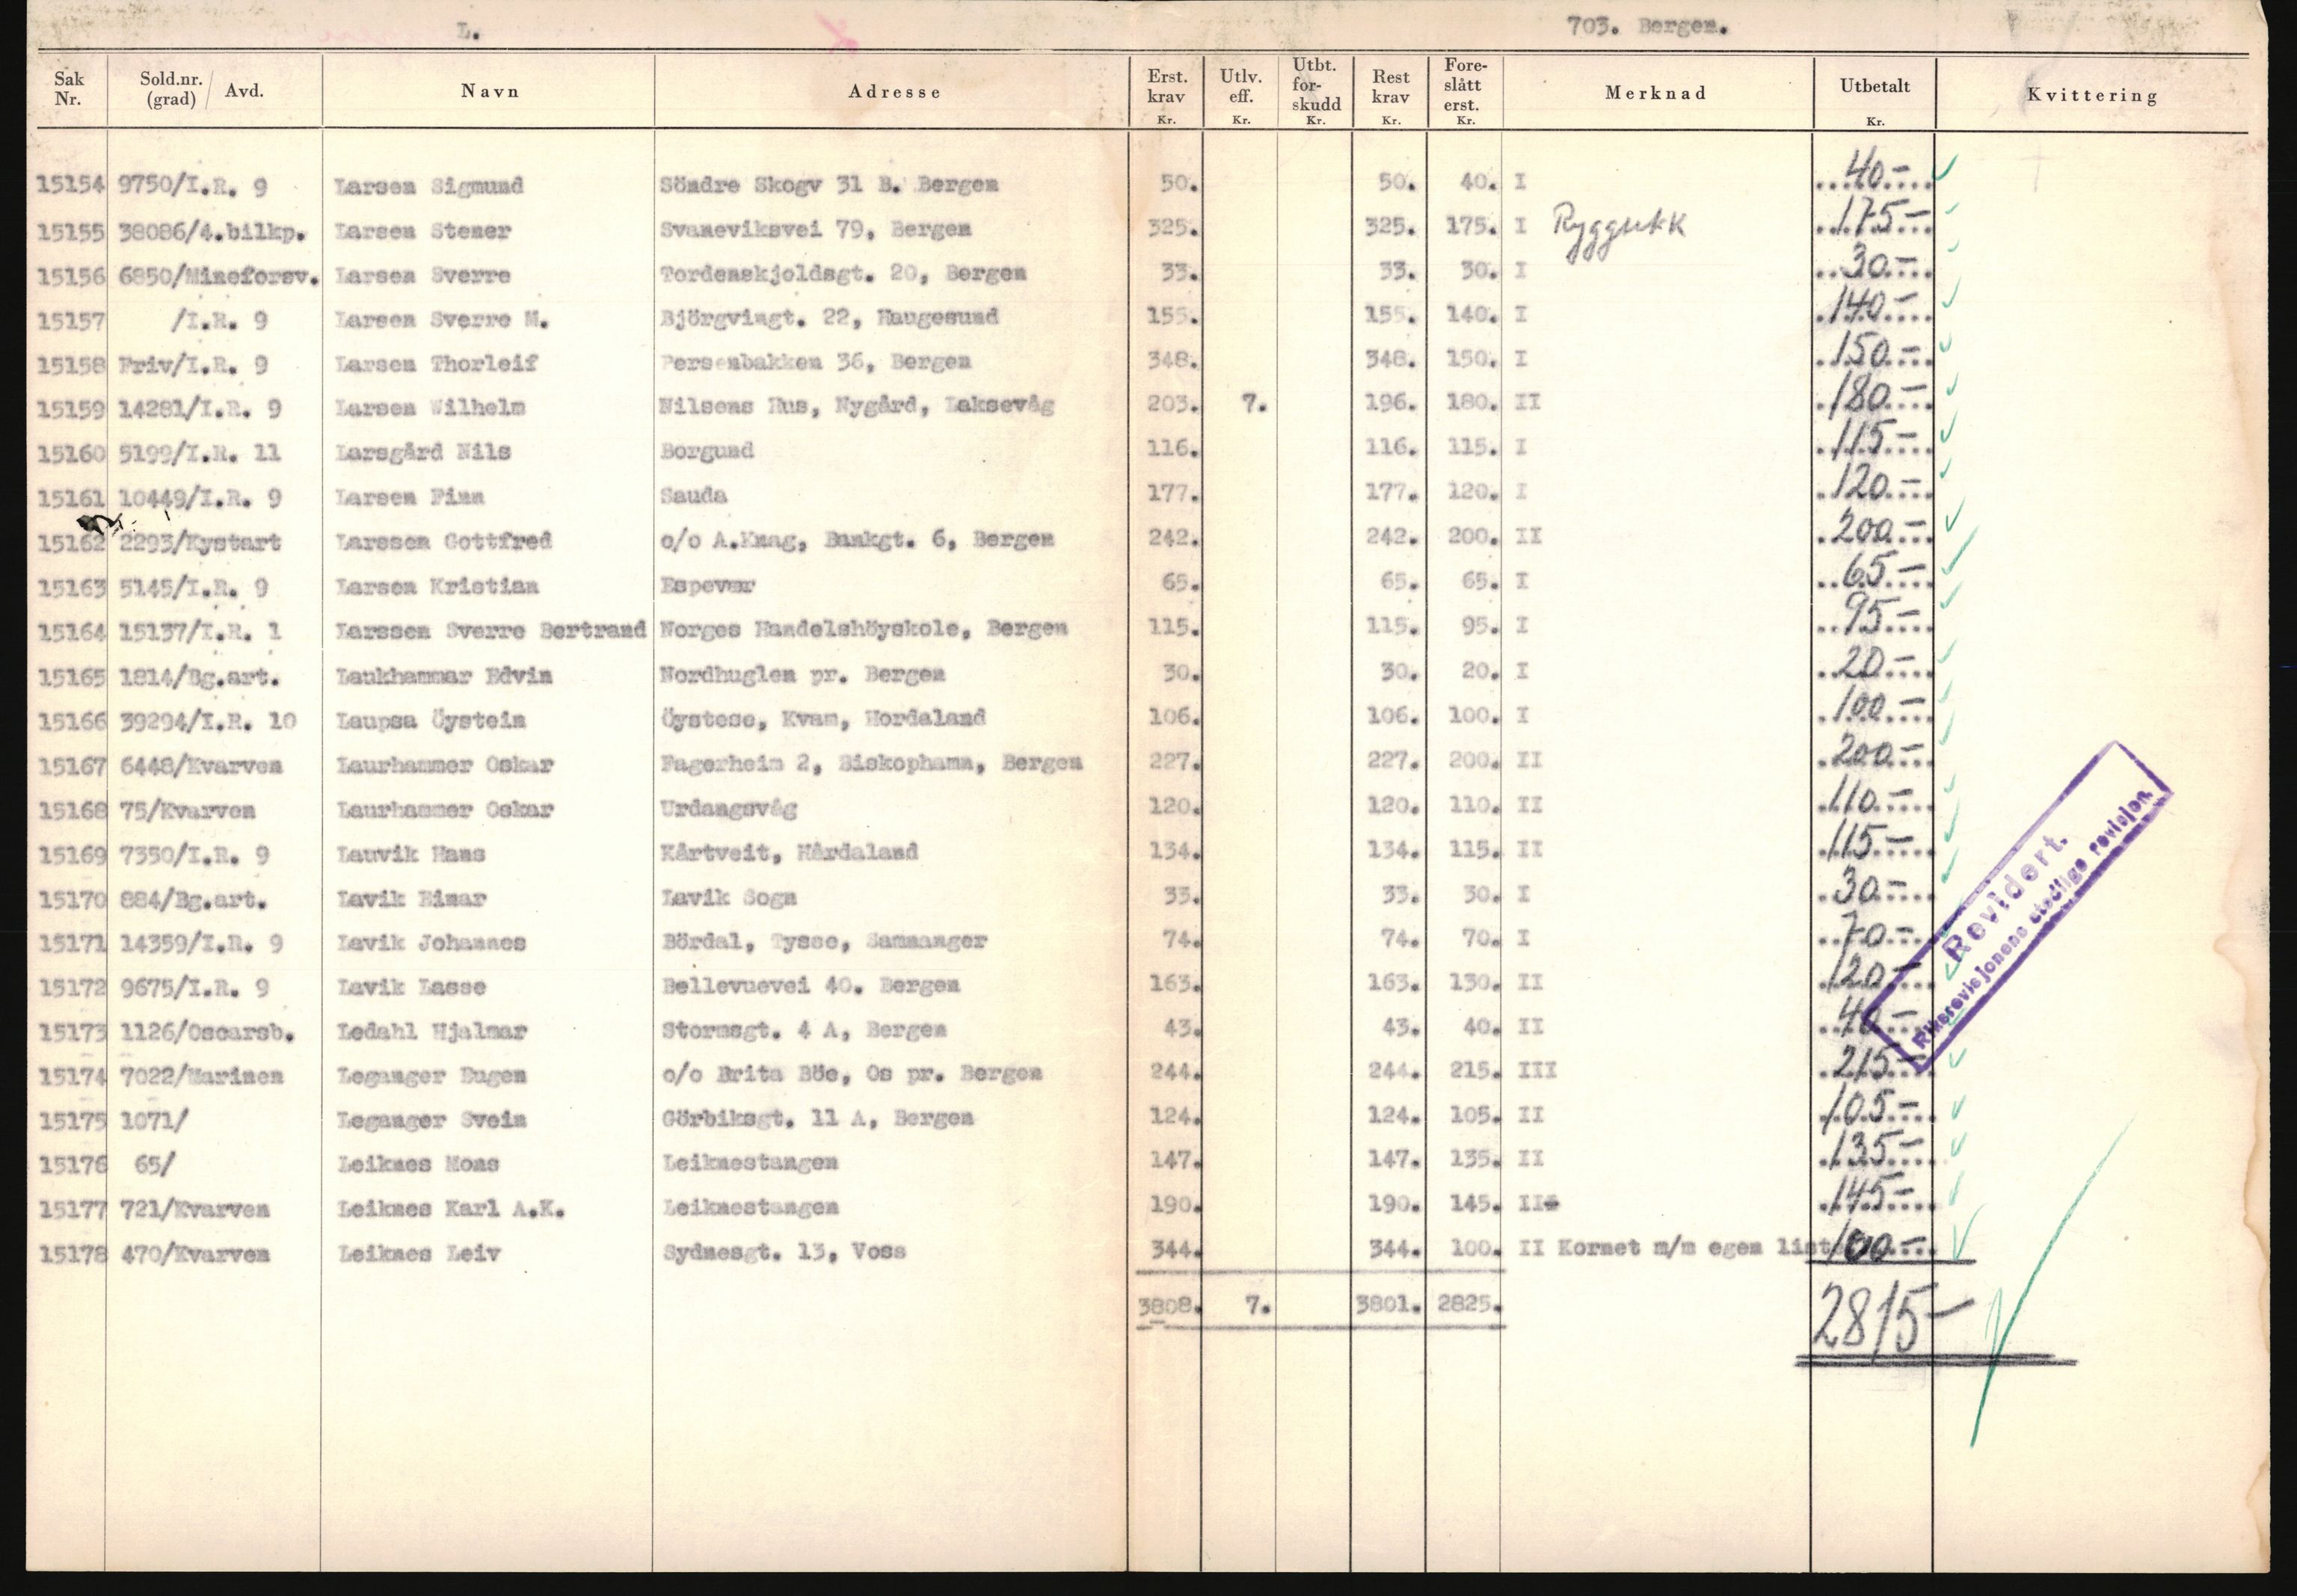 L. 703. Bergen.
Sak Nr. Sold.nr. (grad) / Avd. Navn Adresse Erst. krav Kr. Utlv. eff. Kr. Utbt. for- skudd Kr. Rest krav Kr. Fore- slått erst. Kr. Merknad Utbetalt Kr. Kvittering
15154 9750/I.R. 9 Larsen Sigmund Söndre Skogv 31 B. Bergen 50. 50. 40. I 40.-
15155 38086/4.bilkp. Larsen Stener Svaneviksvei 79, Bergen 325. 325. 175. I Ryggsekk 175-
15156 6850/Mineforsv. Larsen Sverre Tordenskjoldsgt. 20, Bergen 33. 33. 30. I 30.-
15157 /I.R. 9 Larsen Sverre M. Björgvingt. 22, Haugesund 155. 155. 140. I 140-
15158 Friv/I.R. 9 Larsen Thorleif Persenbakken 36, Bergen 348. 348. 150. I 150.-
15159 14281/I.R. 9 Larsen Wilhelm Nilsens Hus, Nygård, Laksevåg 203. 7. 196. 180. II 180-
15160 5199/I.R. 11 Larsgård Nils Borgund 116. 116. 115. I 115-
15161 10449/I.R. 9 Larsen Finn Sauda 177. 177. 120. I 120.-
15162 2293/Kystart Larssen Gottfred c/o A.Knag, Bankgt. 6, Bergen 242. 242. 200. II 200.-
15163 5145/I.R. 9 Larsen Kristian Espevær 65. 65. 65. I 65-
15164 15137/I.R. 1 Larssen Sverre Bertrand Norges Handelshöyskole, Bergen 115. 115. 95. I 95-
15165 1814/Bg.art. Laukhammar Edvin Nordhuglen pr. Bergen 30. 30. 20. I 20-
15166 39294/I.R. 10 Laupsa Öystein Öystese, Kvam, Hordaland 106. 106. 100. I 100-
15167 6448/Kvarven Laurhammer Oskar Fagerheim 2, Biskophamn, Bergen 227. 227. 200. II 200-
15168 75/Kvarven Laurhammer Oskar Urdangsvåg 120. 120. 110. II 110.-
15169 7350/I.R. 9 Lauvik Hans Kårtveit, Hårdaland 134. 134. 115. II 115-
15170 884/Bg.art. Lavik Einar Lavik Sogn 33. 33. 30. I 30.-
15171 14359/I.R. 9 Lavik Johannes Bördal, Tysse, Samnanger 74. 74. 70. I 70.-
15172 9675/I.R. 9 Lavik Lasse Bellevuevei 40. Bergen 163. 163. 130. II 120-
15173 1126/Oscarsb. Ledahl Hjalmar Stormsgt. 4 A, Bergen 43. 43. 40. II 40-
15174 7022/Marinen Leganger Eugen c/o Brita Böe, Os pr. Bergen 244. 244. 215. III 215-
15175 1071/ Leganger Svein Görbiksgt. 11 A, Bergen 124. 124. 105. II 105-
15176 65/ Leiknes Mons Leiknestangen 147. 147. 135. II 135-
15177 721/Kvarven Leiknes Karl A.K. Leiknestangen 190. 190. 145. II 145-
15178 470/Kvarven Leiknes Leiv Sydnesgt. 13, Voss 344. 344. 100. II Kornet m/m egen list 100-
3808. 7. 3801. 2825. 2815-
Revidert.
Riksrevisjonens stedlige revisjon.